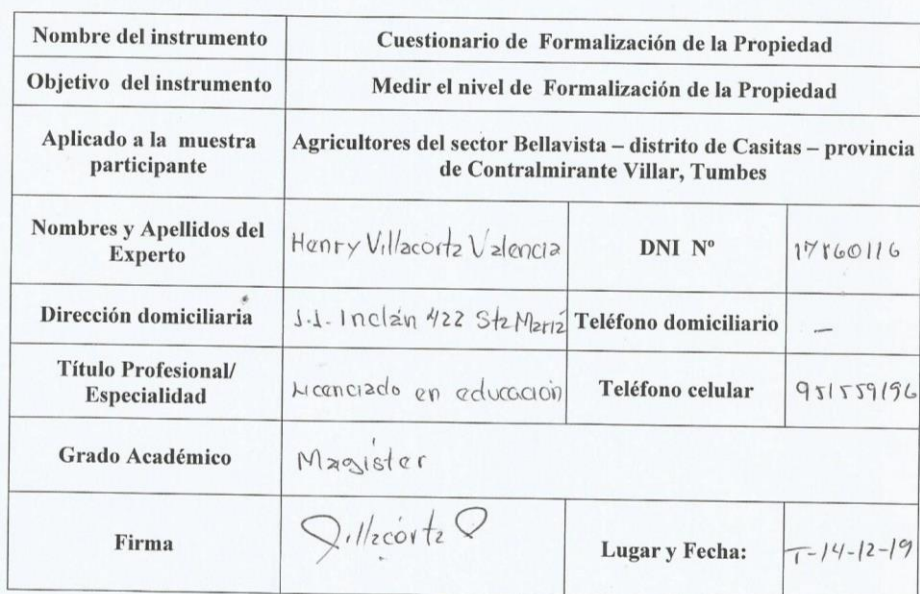 Nombre del instrumento Cuestionario de Formalización de la Propiedad
Objetivo del instrumento Medir el nivel de Formalización de la Propiedad
Aplicado a la muestra
participante
Agricultores del sector Bellavista – distrito de Casitas – provincia
de Contralmirante Villar, Tumbes
Nombres y Apellidos del
Experto
Henry Villacorta Valencia
DNI Nº
Dirección domiciliaria J.J. Inclán 422 Sta María Teléfono domiciliario –
Título Profesional/
Especialidad
Licenciado en educación
Teléfono celular
Grado Académico Magister
Firma Villacórta
Lugar y Fecha: T-14-12-19